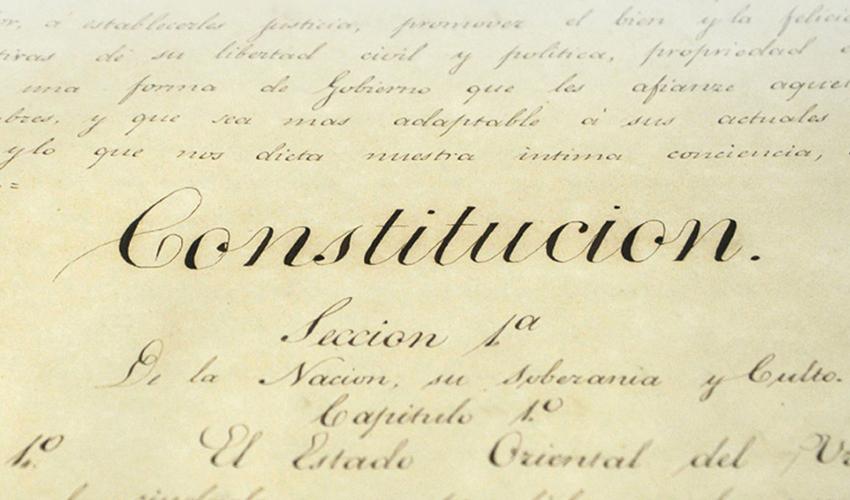 or, á establecerles justicia, promover el bien y la felici
tivas de su libertad civil y politica, propriedad e
una forma de Gobierno que les afianze aque
bres, y que sea mas adaptable á sus actuales
y lo que nos dicta nuestra intima conciencia,
=
Constitucion.
Seccion 1ª
De la Nacion, su soberania y Culto.
Capitulo 1º
1º El Estado Oriental del Ur